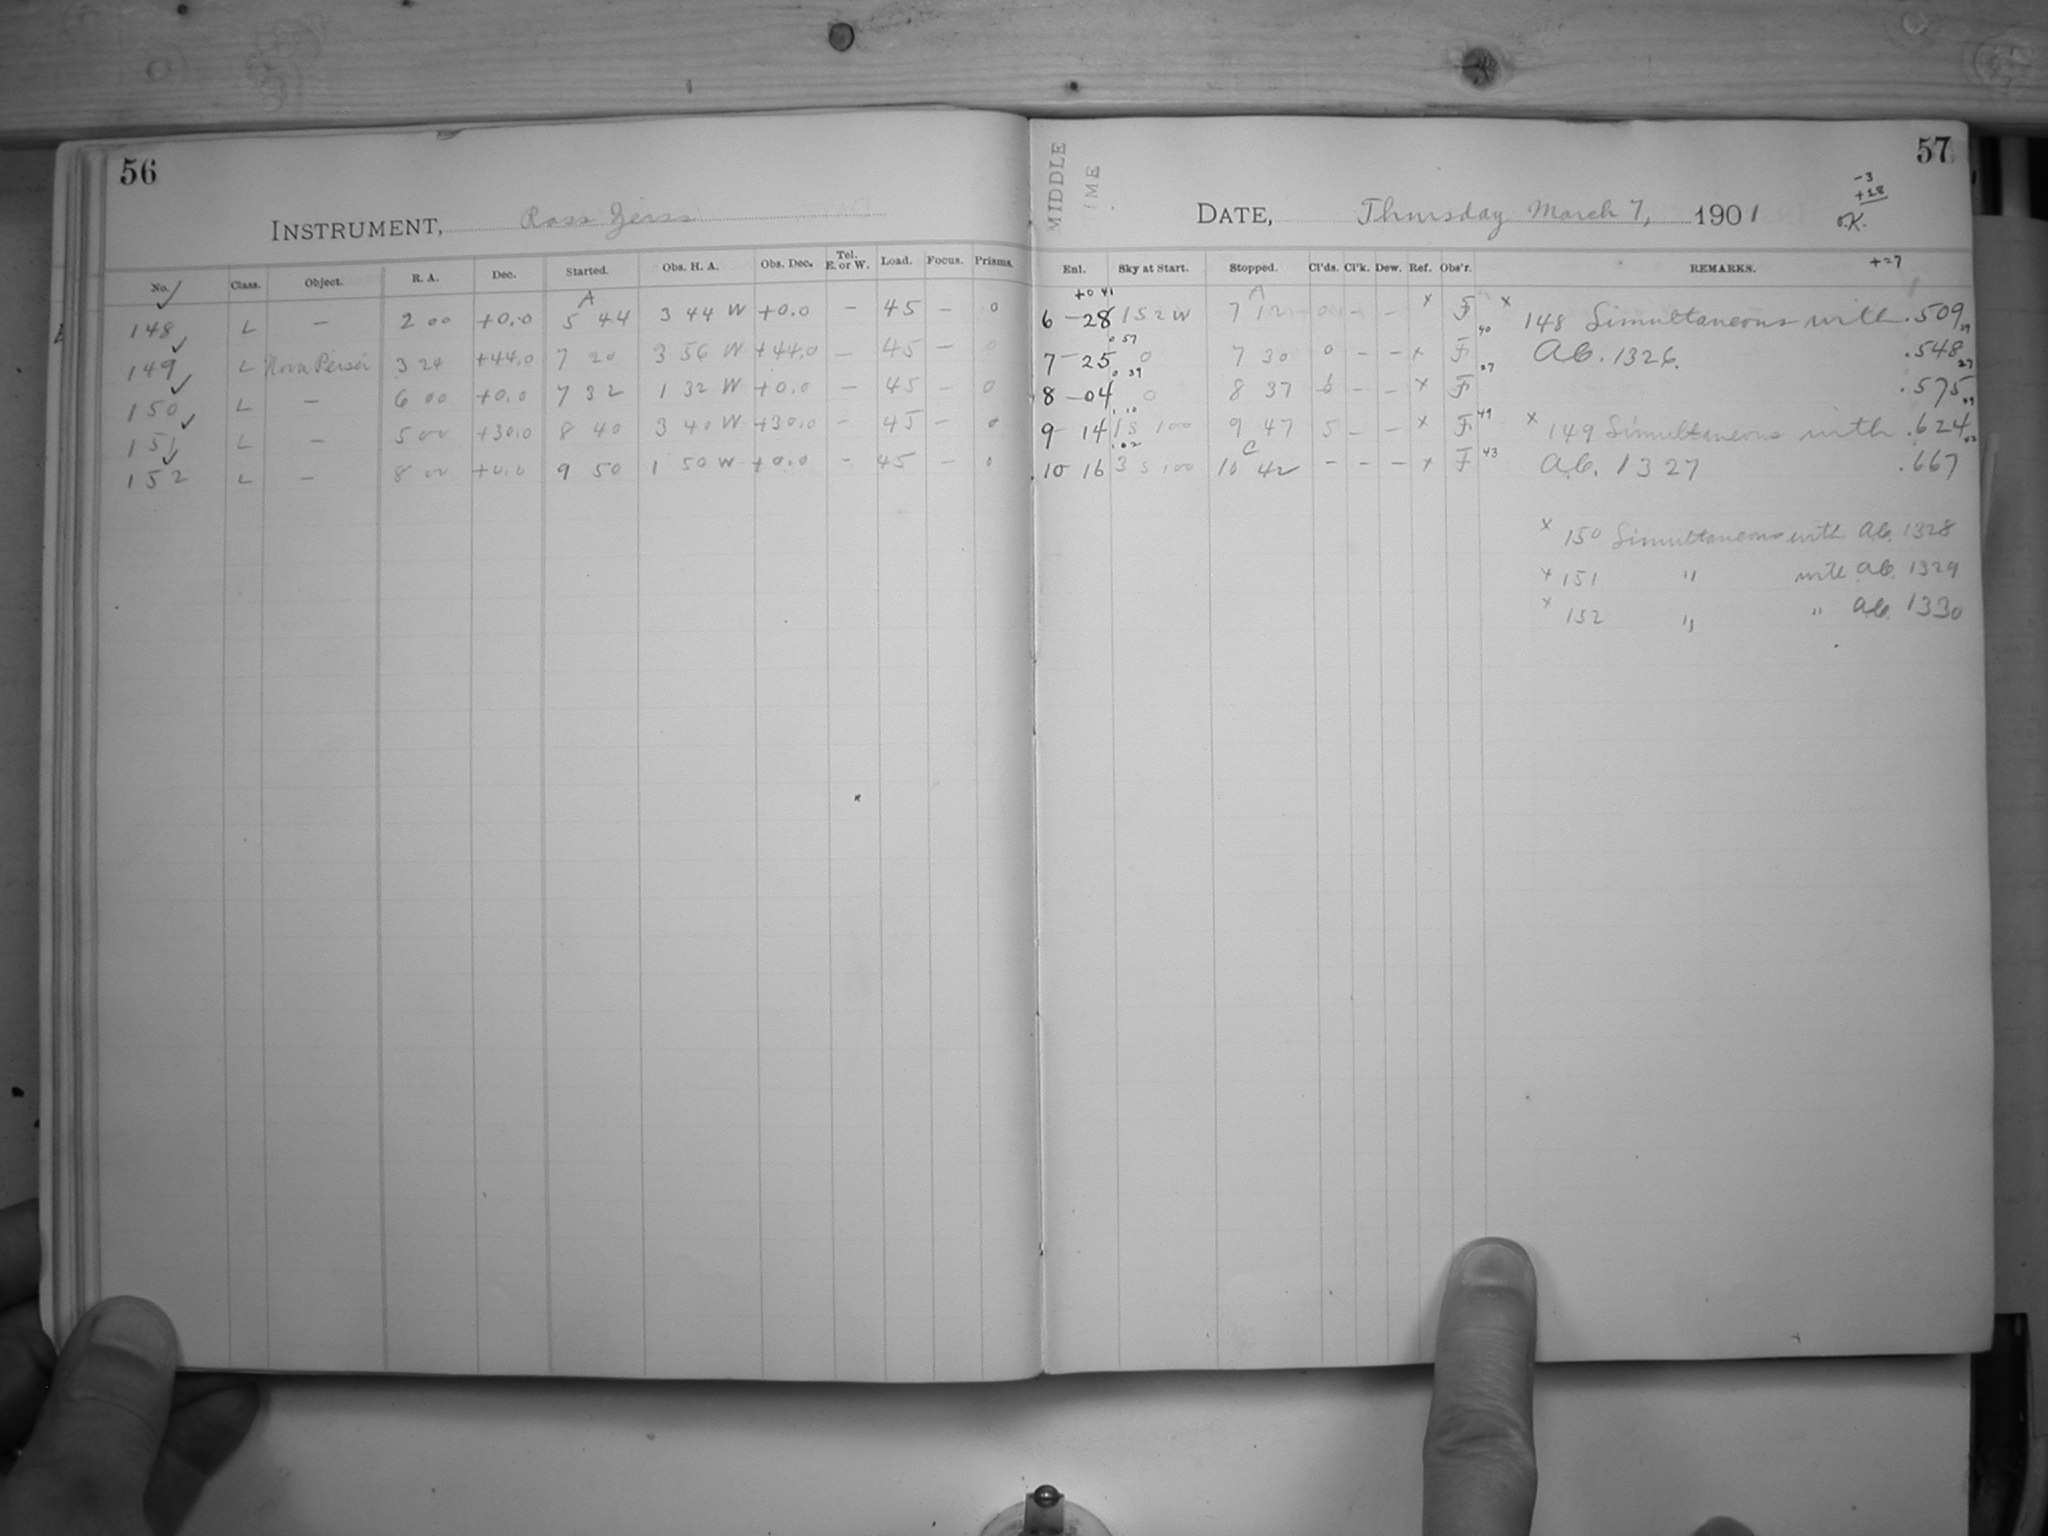 56
INSTRUMENT, Ross Zeiss
No. Class. Object. R. A. Dec. Started. Obs. H. A. Obs. Dec. Tel. E. or W. Load. Focus. Prisms.
A
148 L — 2 00 +0.0 5 44 3 44 W +0.0 — 45 — 0
149 L Nova Persei 3 24 +44.0 7 20 3 56 W +44.0 — 45 — 0
150 L — 6 00 +0.0 7 32 1 32 W +0.0 — 45 — 0
151 L — 5 00 +30.0 8 40 3 40 W +30.0 — 45 — 0
152 L — 8 00 +0.0 9 50 1 50 W +0.0 — 45 — 0
57
MIDDLE
IME
DATE, Thursday March 7, 1901
-3
+28
O.K.
Enl. Sky at Start. Stopped. Cl'ds. Cl'k. Dew. Ref. Obs'r. REMARKS. +27
A
6 — 28 152W 7 12 0 — — x F x 148 Simultaneous with .509
7 — 25 0 7 30 0 — — x F AC. 1326. .548
8 — 04 0 8 37 6 — — x F .575
9 14 1S 100 9 47 5 — — x F x 149 Simultaneous with .624
C
10 16 3 S 100 10 42 — — — x F AC. 1327 .667
x 150 Simultaneous with AC. 1328
x 151 " with AC. 1329
x 152 " " AC. 1330